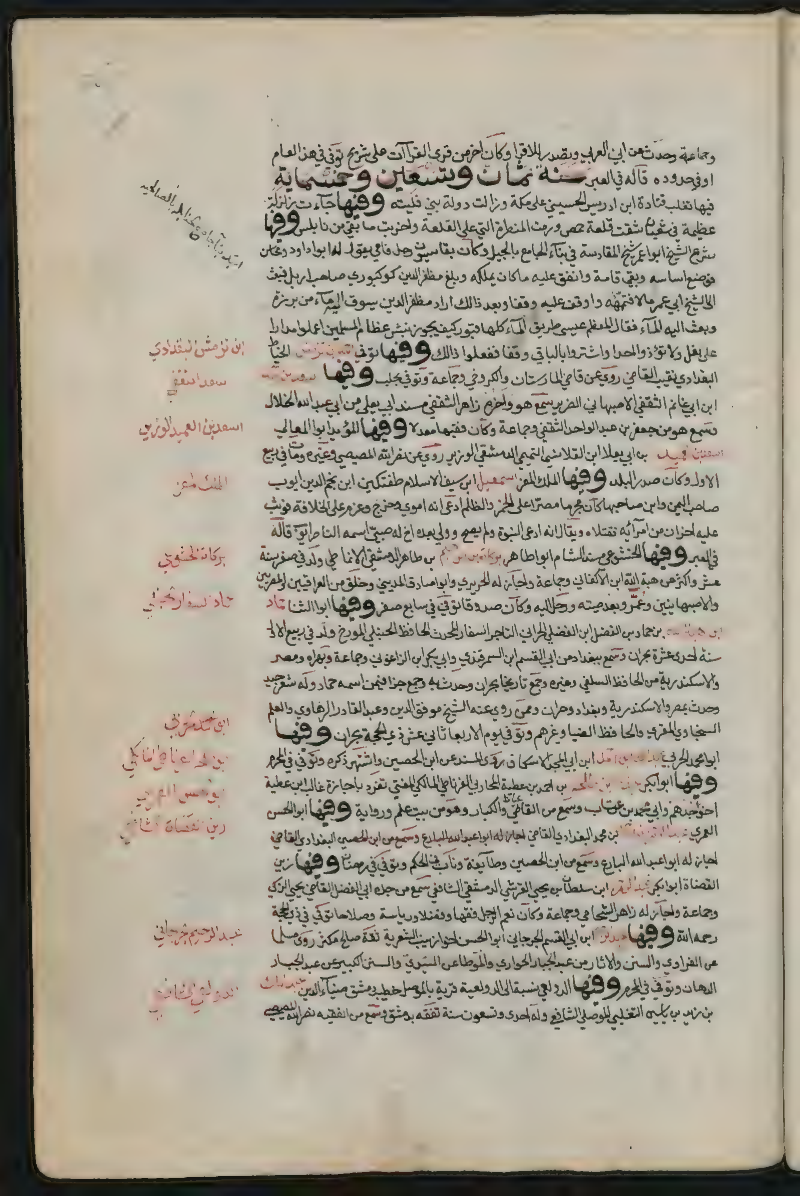 وجماعة وحدث عن ابي العرب وتصدر للاقرا وكان اخر من قرى القراآت على شريح توفي في هذا العام
او في حدوده قاله في العبر سنة ثمان وتسعين وخمسماية
فيها تغلب قتادة ابن ادريس الحسيني على مكة وزالت دولة بني فليته وفيها جاءت زلزلة
عظيمة في شعبان شقت قلعة حمص ورمت المنظرة التي على القلعة واخربت ما بقي من نابلس وفيها
شرع الشيخ ابو اعمر شيخ المقادسة في بناء الجامع بالجبل وكان بقاسيون رجل فامي يقال له ابو داود محاسن
فوضع اساسه وبقي قامة وانفق عليه ماكان يملكه وبلغ مظفر الدين كوكبوري صاحب اربل فبعث
الى الشيخ ابي عمر مالا فتممه واوقف عليه وقفا وبعد ذالك اراد مظفر الدين سوق الماء من برزه
وبعث اليه الماء فقال المعظم عيسى طريق الماء كلها قبور كيف يجوز نبش عظام المسلمين اعملوا مدارا
على بغل ولا تؤذوا احدا واشتروا بالباقي وقفا ففعلوا ذالك وفيها توفي الخياط
البغدادي نقيب القاضي روى عن قاضي المارستان والكروخي وجماعة وتوفي بحلب وفيها سعد بن
ابن ابي غانم الثقفي الاصبهاني الضرير سمع هو واخوه زاهر الثقفي مسند ابي يعلى من ابي عبد الله الخلال
وسمع هو من جعفر بن عبد الواحد الثقفي وجماعة وكان فقيها معدلا وفيها المؤيد ابو المعالي
اسعد بن بن ابي يعلا ابن القلانسي التميمي الدمشقي الوزير روى عن نصر الله المصيصي وغيره ومات في ربيع
الاول وكان صدر البلد وفيها الملك المعز اسمعيل ابن سيف الاسلام طغتكين ابن نجم الدين ايوب
صاحب اليمن وابن صاحبها كان مجرما مصرا على الخمر والظلم ادعى انه اموي وخرج وعزم على الخلافة فوثب
عليه اخوان من امرائه فقتلاه ويقال انه ادعى النبوة ولم يصح وولي بعده اخ له صبي اسمه الناصر ايوب قاله
في العبر وفيها الخشوعي مسند الشام ابو اطاهر بركات بن بن طاهر الدمشقي الانماطي ولد في صفر سنة
عشر واكثر عن هبة الله ابن الاكفاني وجماعة واجاز له الحريري وابو صادق المديني وخلق من العراقيين والمصريين
والاصبهانيين وعمر وبعد صيته ورحل اليه وكان صدوقا توفي في سابع صفر وفيها ابو الثنا حماد
ابن هبة الله بن حماد بن الفضل ابن الفضلي الحراني التاجر السفار المحدث الحافظ الحنبلي المورخ ولد في ربيع الاول
سنة احدى عشرة بحران وسمع ببغداد من ابي القسم ابن السمرقندي وابي بكر ابن الزاغوني وجماعة وبهراه ومصر
والاسكندرية من الحافظ السلفي وغيره وجمع تاريخا بحران وحدث به وجمع جزا فيمن اسمه حماد وله شعر جيد
وحدث بمصر والاسكندرية وبغداد وحران وممن روى عنه الشيخ موفق الدين وعبد القادر الرهاوي والعلم
السخاوي المقري والحافظ الضيا وغيرهم وتوفي يوم الاربعا ثاني عشر ذي الحجة بحران وفيها
ابو محمد الحربي ابن ابي المجد الاسكاف روى المسند عن ابن الحصين واشتهر ذكره وتوفي في المحرم
وفيها ابو بكر بن احمد بن عطية المحاربي الغرناطي المالكي المفتي تفرد باجازة غالب ابن عطية
اخو جدهم وابي محمد بن عتاب وسمع من القاضي عياض والكبار وهو من بيت علم ورواية وفيها ابو الحسن
العمري بن محمد البغدادي القاضي اجاز له ابو عبد الله البارع وسمع من ابن الحصين البغدادي القاضي
اجاز له ابو عبد الله البارع وسمع من ابن الحصين وطايفة وناب في الحكم وتوفي في رمضان وفيها زين
القضاة ابو بكر ابن سلطان بن يحيى القرشي الدمشقي الشافعي سمع من جده ابي الفضل القاضي يحيى الزكي
وجماعة واجاز له زاهر الشحامي وجماعة وكان نعم الرجل فقها وفضلا ورياسة وصلاحا توفي في ذي الحجة
رحمه الله وفيها ابن ابي القسم الجرجاني ابو الحسن اخو زينب الشعرية ثقة صالح مكثر روى مسلما
عن الفراوي والسنن والاثار من عبد الجبار الخواري والموطا عن السيدي والسنن الكبير عن عبد الجبار
الدهان وتوفي في المحرم وفيها الدولعي نسبة الى الدولعية قرية بالموصل خطيب دمشق ضياء الدين عبد الملك
بن زيد بن ياسين التغلبي الموصلي الشافعي وله احدى وتسعون سنة تفقه بدمشق وسمع من الفقيه نصر الله المصيصي
ابن نرمش البغدادي
سعد الثقفي
اسعد بن العميد الوزير
الملك المعز
بركات الخشوعي
عبد الرحيم الجرجاني